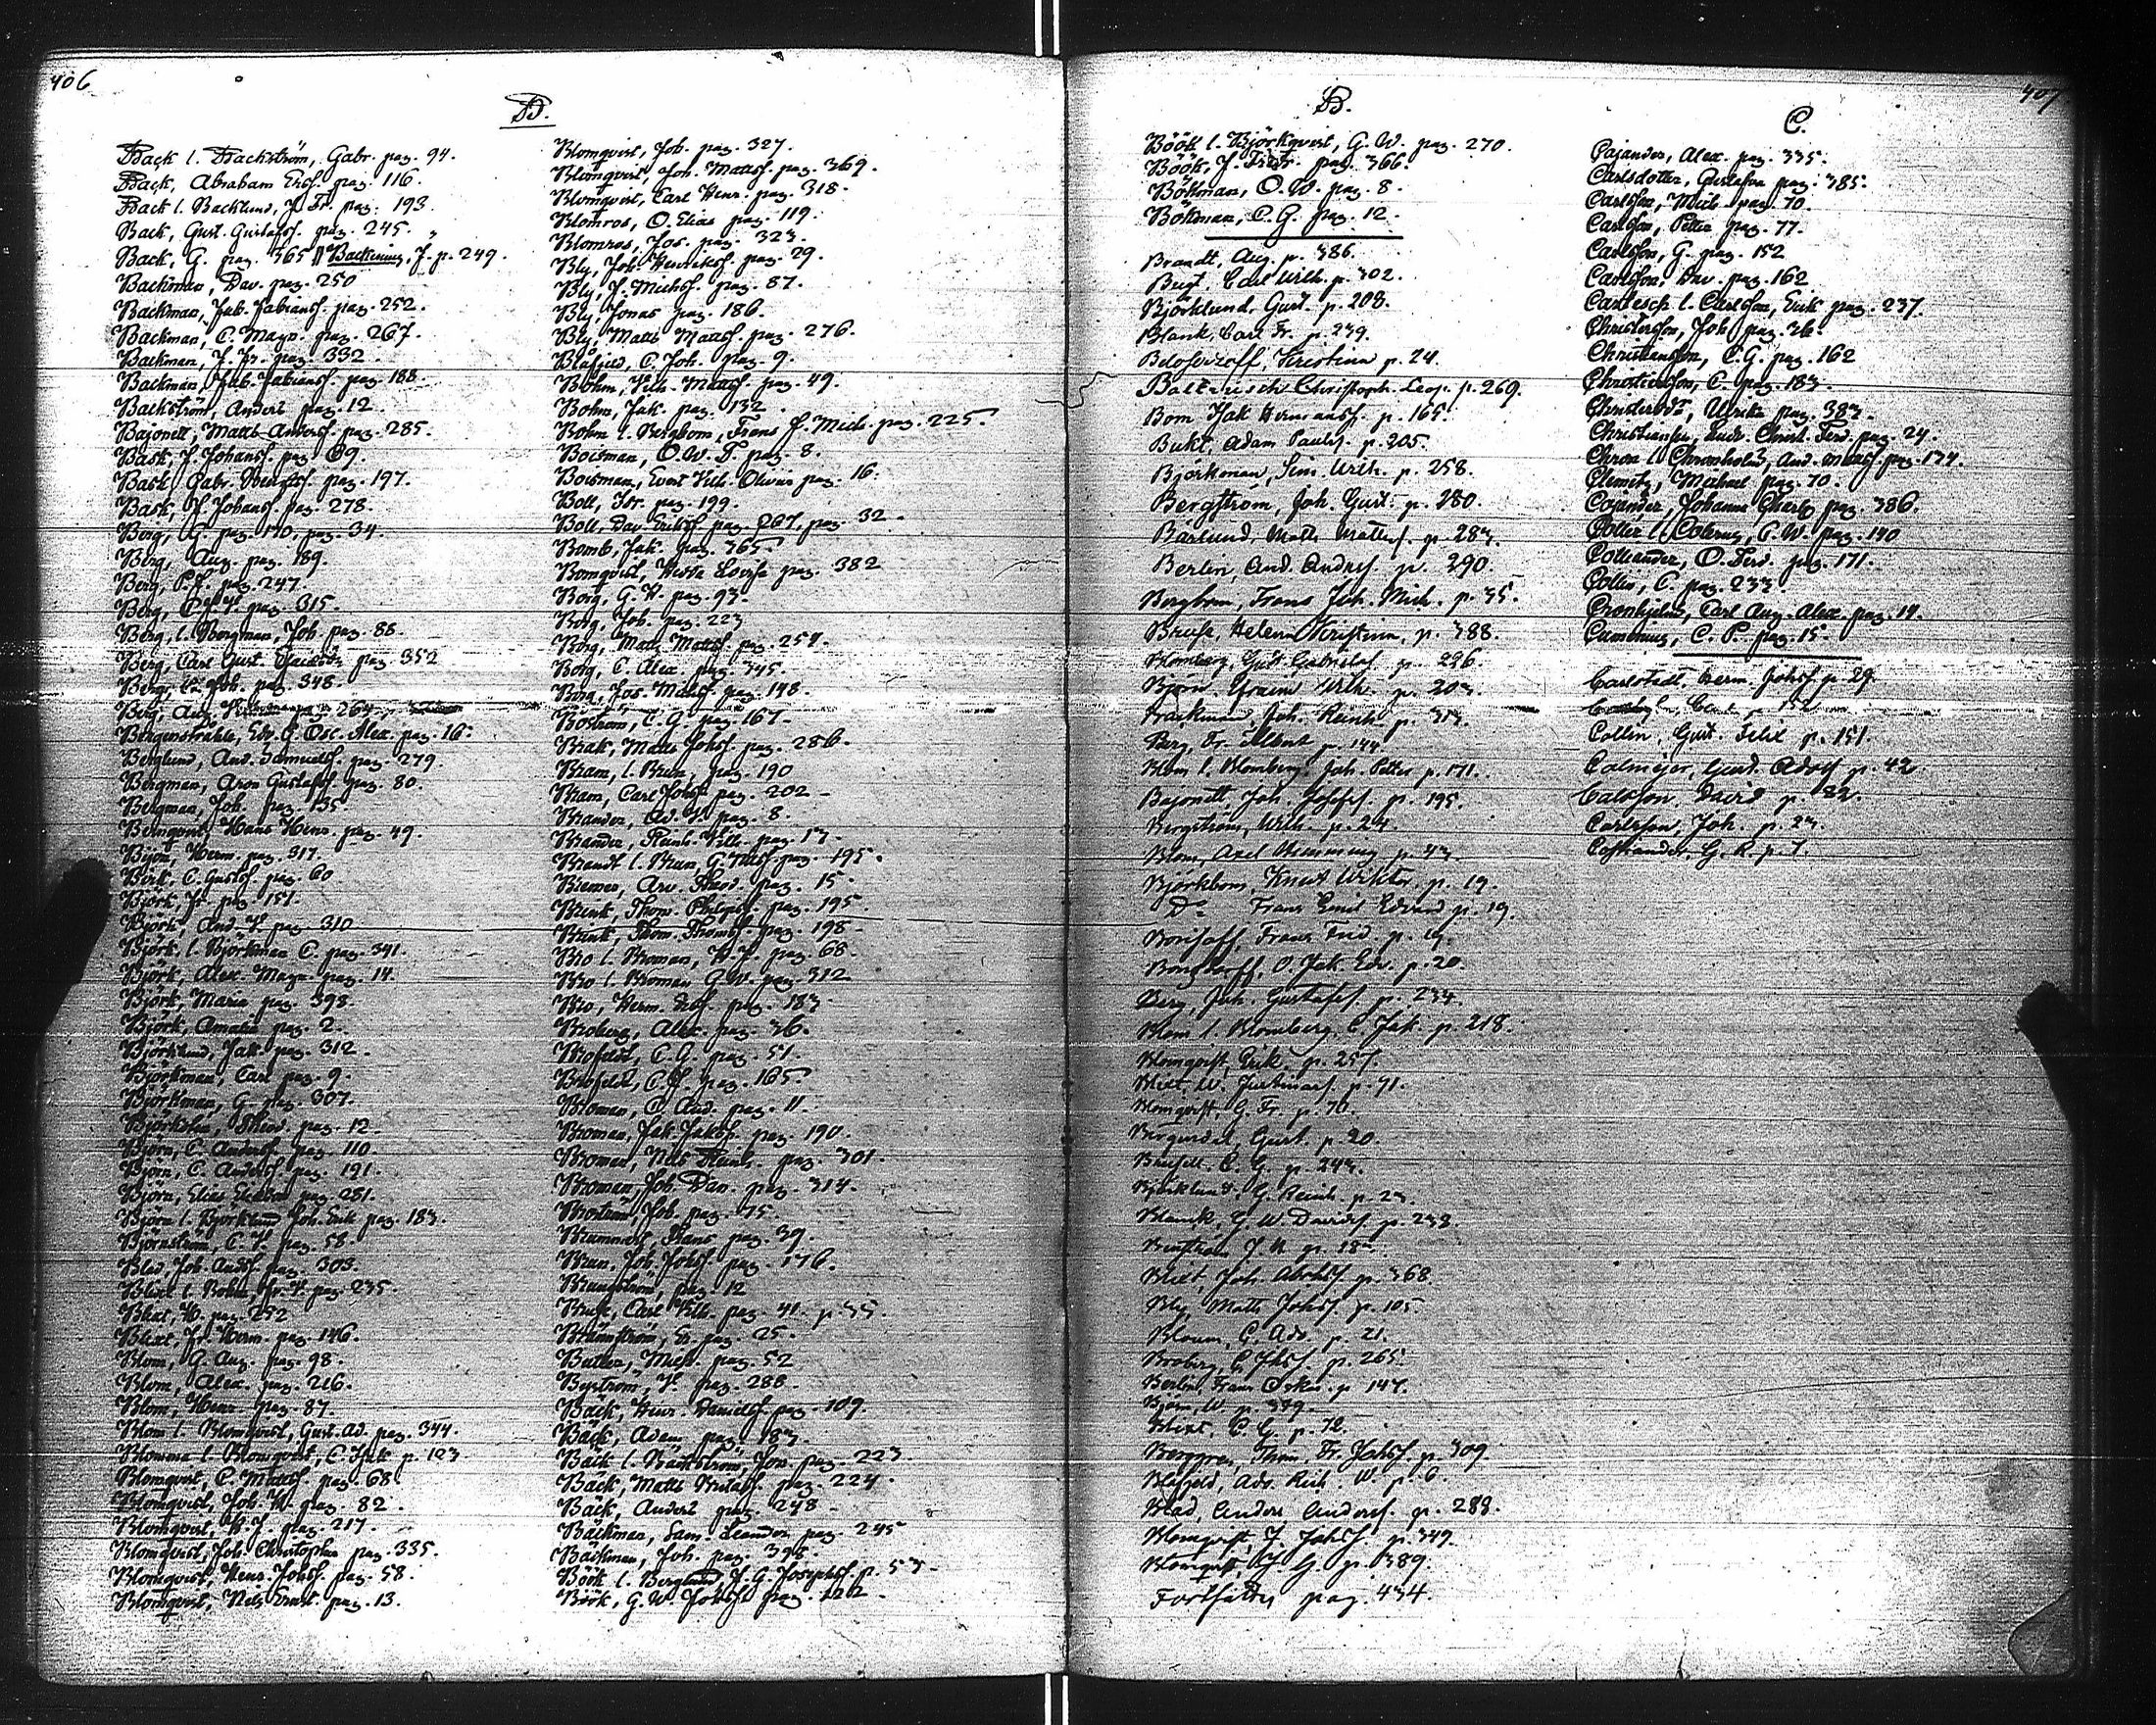 406
B.
Back l. Backström, Gabr. pag. 94.
Back, Abraham Ersf. pag. 116.
Back l. Backlund, J. Fr. pag. 193.
Back, Gust. Gustafsf. pag. 245.
Back, G. pag. 365 || Backenius, J. p. 249.
Backman, Dav. pag. 250
Backman, Jab. Fabiansf. pag. 252.
Backman, C. Magn. pag. 267.
Backman, J. Fr. pag. 332.
Backman, Jab. Fabiansf. pag. 188.
Backström, Anders pag. 12.
Bajonett, Matts Andersf. pag. 285.
Bask, J. Johansf. pag. 69.
Bask, Gabr. Bengtsf. pag. 197.
Bask, J. Johansf. pag. 278.
Berg, G. pag. 170, pag. 34.
Berg, Aug. pag. 189.
Berg, P. J. pag. 247.
Berg, C. J. V. pag. 315.
Berg, l. Bergman, Joh. pag. 88.
Berg, Carl Gust. pag. 352
Berg, C. Joh. pag. 348.
Berg, Aug. pag. 264
Bergenstråhle, Edv. O. Osc. Alex. pag. 16.
Berglund, And. Samuelsf. pag. 279.
Bergman, Aron Gustafsf. pag. 80.
Bergman, Joh. pag. 135
Bergqvist, Hans Henr. pag. 49.
Björ, Herm. pag. 317.
Birk, C. Gustsf. pag. 60
Björk, Fr. pag. 157.
Björk, And. V. pag. 310
Björk, l. Björkman C. pag. 341.
Björk, Alex. Magn. pag. 14.
Björk, Maria pag. 398.
Björk, Amalia pag. 2.
Björklund, Jak. pag. 312.
Björkman, Carl pag. 9.
Björkman, G. pag. 307.
Björkholm, Theod. pag. 12.
Björn, C. Andersf. pag. 110
Björn, C. Andersf. pag. 191.
Björn, Elias pag. 281.
Björn l. Björklund Joh. Erik pag. 183.
Björnström, C. V. pag. 58.
Blad, Joh. Andsf. pag. 303.
Blixt l. Bohm, Fr. V. pag. 235.
Blixt, W. pag. 252
Blixt, Fr. Herm. pag. 146.
Blom, G. Aug. pag. 98.
Blom, Alex. pag. 216.
Blom, Henr. pag. 87.
Blom l. Blomqvist, Gust. Ad. pag. 344.
Blomma l. Blomqvist, C. Jak. p. 123.
Blomqvist, C. Mattsf. pag. 68
Blomqvist, Joh. W. pag. 82.
Blomqvist, K. J. pag. 217.
Blomqvist, Joh. Christopher pag. 335.
Blomqvist, Henr. Johsf. pag. 58.
Blomqvist, Nils Ernst pag. 13.
Blomqvist, Joh. pag. 327.
Blomqvist, Joh. Mattsf. pag. 369.
Blomqvist, Carl Henr. pag. 318.
Blomros, O. Elias pag. 119.
Blomros, Jos. pag. 323.
Bly, Joh. Henriksf. pag. 29.
Bly, J. Michsf. pag. 87.
Bly, Jonas pag. 186.
Bly, Matts Mattsf. pag. 276.
Blåfjeld, C. Joh. pag. 9.
Bohm, Vilh. Mattsf. pag. 49.
Bohm, Jak. pag. 132.
Bohm l. Bergbom, Frans J. Mich. pag. 225.
Boisman, O. W. F. pag. 8.
Boisman, Evert Vilh. Olivier pag. 16.
Boll, Fr. pag. 199.
Boll, Dav. Eriksf. pag. 267. pag. 32.
Bomb, Jak. pag. 365.
Bomqvist, Hedda Lovisa pag. 382
Borg, G. W. pag. 93.
Borg, Joh. pag. 223
Borg, Matts Mattsf. pag. 254.
Borg, C. Alex. pag. 345.
Borg, Jos. Mattsf. pag. 148.
Boström, C. G. pag. 167.
Brak, Matts Johsf. pag. 286.
Bram, l. Brun, pag. 190
Bram, Carl Johsf. pag. 202
Brander, Ad. V. pag. 8.
Brander, Reinh. Vilh. pag. 13
Brandt l. Brun, G. Mattsf. pag. 195.
Bremer, Arv. Theod. pag. 15.
Brink, Thom. Philipsf. pag. 195
Brink, Thom. Thomsf. pag. 198.
Bro l. Broman, V. J. pag. 68.
Bro l. Broman G. W. pag. 312
Bro, Herm. pag. 183.
Broberg, Alex. pag. 36.
Brofeldt, C. G. pag. 51.
Brofeldt, C. J. pag. 165.
Broman, C. And. pag. 11.
Broman, Jak. Jaksf. pag. 190.
Broman, Nils Reinh. pag. 301.
Broman, Joh. Dan. pag. 314.
Broström, Joh. pag. 75.
Brummer, Frans pag. 39.
Brun, Joh. Johsf. pag. 176.
Brungström, pag. 12
Bruk, Carl Vilh. pag. 41. p. 35.
Brännström, Gr. pag. 25.
Butter, Mich. pag. 52
Byström, V. pag. 288.
Bäck, Henr. Danielsf. pag. 109.
Bäck, Adam pag. 83.
Bäck l. Bäckström, Jon. pag. 223
Bäck, Matts Mattsf. pag. 224.
Bäck, Anders pag. 248
Bäckman, Sam. Leander pag. 245
Bäckman, Joh. pag. 398.
Böök l. Berglund, J. G. Josephsf. p. 53.
Böök, G. W. Johsf. pag. 222
B.
407
Böök l. Björkqvist, G. W. pag. 270.
Böök, J. Fredr. pag. 366.
Bökman, O. W. pag. 8.
Bökman, C. G. pag. 12.
Brandt, Aug. p. 386.
Bugt, Carl Wilh. p. 302.
Björklund, Gust. p. 208.
Blank, Carl Fr. p. 239.
Beloseroff, Kristina p. 24.
Baltzrusch Christoph. Leop. p. 269.
Bom Jak Hermansf. p. 165.
Bukt, Adam Paulsf. p. 205.
Björkman, Sim. Wilh. p. 258.
Bergström, Joh. Gust. p. 280.
Bärlund, Matts Mattsf. p. 283.
Berlin, And. Andrsf. p. 290.
Bergbom, Frans Joh. Mich. p. 35.
Bruse, Helena Kristina, p. 388.
Blomberg, Gust. Gabrielsf. p. 226.
Björn, Efraim Wilh. p. 203.
Brackman, Joh. Reinh. p. 313.
Berg, Fr. Albert p. 144.
Blom l. Blomberg, Joh. Petter p. 171.
Bajonett, Joh. Josefsf. p. 195.
Bergström, Wilh. p. 24.
Blom, Axel Hemming p. 43.
Björkbom, Knut Wiktor. p. 19.
Do Frans Emil Edvard p. 19.
Borisoff, Frans Fred. p. 19.
Borgdorff, O. Jak. Edv. p. 20.
Berg, Joh. Gustafsf. p. 234.
Blom l. Blomberg, C. Jak. p. 218.
Blomqvist, Erik. p. 257.
Blixt, W. Justinasf. p. 91.
Blomqvist, G. Fr. p. 76.
Bergendal, Gust. p. 20.
Blåfjell. C. G. p. 243.
Björklund, G. Reinh. p. 23.
Blanck, G. W. Davidsf. p. 238.
Blixt, Joh. Abrhsf. p. 368.
Bly Matts Johsf. p. 105.
Bloum, C. Adv. p. 21.
Broberg, C. Jhsf. p. 265.
Berlin, Frans Oskar p. 147.
Björn, W. p. 379.
Blixt, C. G. p. 72.
Berggren, Thom. Fr. Johsf. p. 309.
Blåfjeld, Adv. Rich. W. p. 6.
Blad, Anders Andersf. p. 288.
Blomqvist, J. Johsf. p. 349.
Blomqvist, J. G. p. 389.
Fortsättes pag. 434.
C.
Cajander, Alex. pag. 335.
Carlsdotter, Gustafva pag. 385.
Carlsson, Mich. pag. 70.
Carlsson, Petter pag. 77.
Carlsson, G. pag. 152
Carlsson, Dav. pag. 162
Carlesch l. Carlsson, Erik pag. 237.
Christersson, Joh. pag. 26.
Christiansson, C. G. pag. 162
Christiersson, C. pag. 183.
Christersdr, Ulrika pag. 383.
Christiansen, Ludv. Christ. Ferd. pag. 24.
Chron l. Chronholm, And. Mattsf. pag. 174.
Clemitz, Michael pag. 70.
Cojander, Johanna Charl. pag. 386.
Coller l. Colerus, C. W. pag. 140
Colleander, O. Ferd. pag. 171.
Collin, C. pag. 233.
Cronhjelm, Carl Aug. Alex. pag. 14.
Cumenius, C. P. pag. 15.
Carlstedt, Herm. Johsf. p. 29.
Collin, Gust. Felix p. 151.
Calmejer, Gust. Adolf p. 42
Carlsson, David p. 82.
Carlsson, Joh. p. 23.
Castrander, G. R. p. 7.